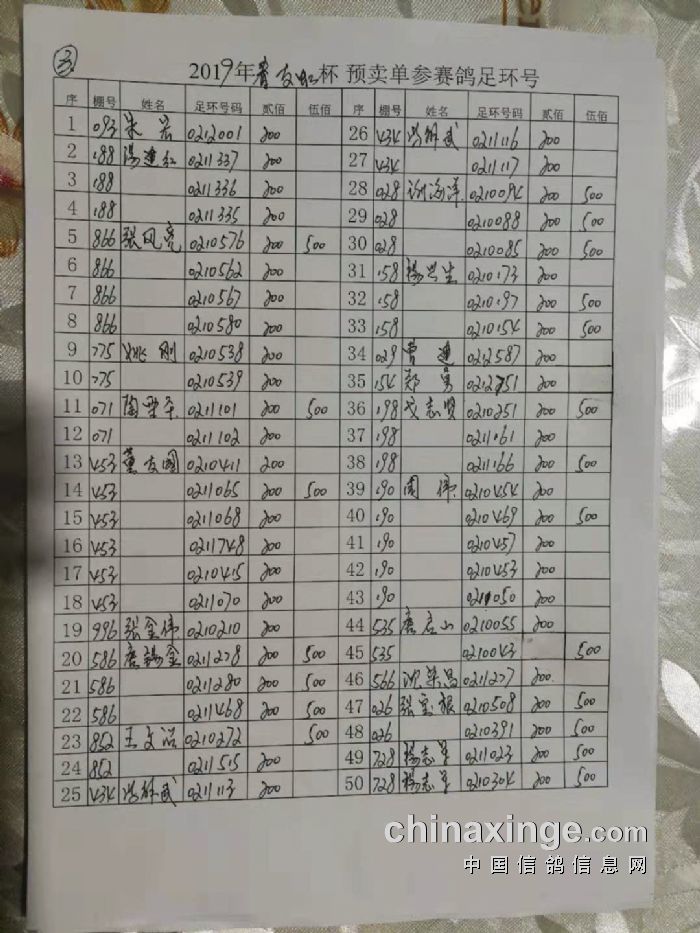 ③
2019年青友虹杯 预卖单参赛鸽足环号
序 棚号 姓名 足环号码 贰佰 伍佰 序 棚号 姓名 足环号码 贰佰 伍佰
1 093 朱宏 0212001 200 26 434 0211116 200
2 188 汤建红 0211337 200 27 434 0211117 200
3 188 0211336 200 28 028 谢海洋 0210094 200 500
4 188 0211335 200 29 028 0210088 200 500
5 866 张风亮 0210576 200 500 30 028 0210085 200 500
6 866 0210562 200 31 158 杨兴生 0210173 200
7 866 0210567 200 32 158 0210197 200 500
8 866 0210580 200 33 158 0210154 200 500
9 775 姚刚 0210538 200 34 029 曹建 0212587 200
10 775 0210539 200 35 154 郑勇 0212751 200
11 071 0211101 200 500 36 198 戈志贤 0210251 200 500
12 071 0211102 200 37 198 0211161 200
13 453 董友国 0210411 200 38 198 0211166 200 500
14 453 0211065 200 500 39 190 周伟 0210454 200
15 453 0211068 200 40 190 0210469 200 500
16 453 0211748 200 41 190 0210457 200
17 453 0210415 200 42 190 0210453 200
18 453 0211070 200 43 190 050 200
19 996 张金伟 0210210 200 44 535 唐启山 0210055 200
20 586 唐锡金 0211278 200 500 45 535 0210043 500
21 586 0211280 200 500 46 566 沈荣昌 0211277 200
22 586 0211468 200 500 47 026 张宝根 0210508 200 500
23 852 王文浩 0210272 500 48 026 0210391 200 500
24 852 0211515 200 49 728 杨志军 0211023 200 500
25 434 0211113 200 50 728 杨志军 0210304 200 500
chinaxinge.com
中国信鸽信息网